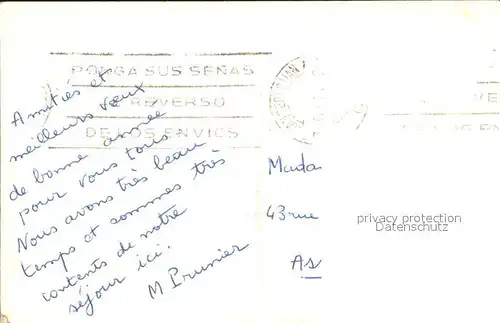 PONGA SUS SEÑAS
REVERSO
DE LOS ENVIOS
Amitiés et
meilleurs vœux
de bonne année
pour vous tous
Nous avons très beau
temps et sommes très
contents de notre
séjour ici.
M Prunier
Mada
43 rue
As
privacy protection
Datenschutz